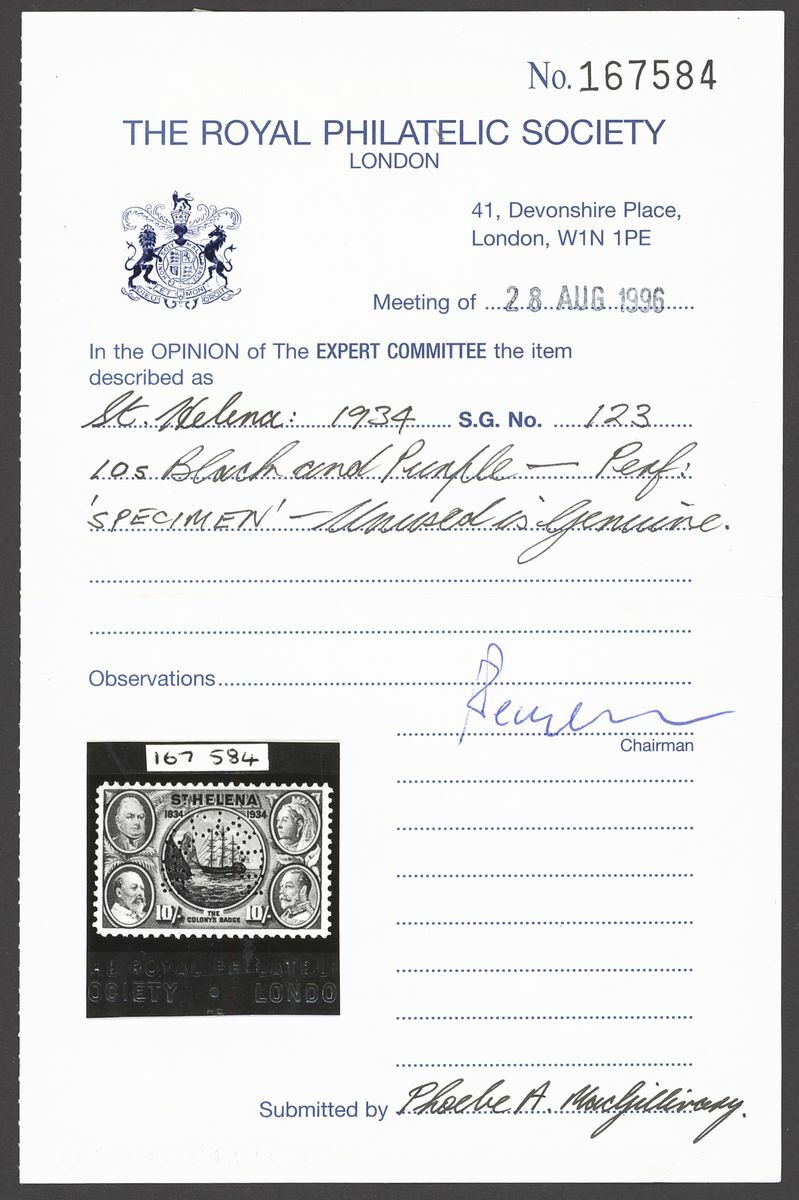 No. 167584
THE ROYAL PHILATELIC SOCIETY
LONDON
41, Devonshire Place,
London, W1N 1PE
DIEU ET MON DROIT
Meeting of 28 AUG 1996
In the OPINION of The EXPERT COMMITTEE the item
described as
St. Helena: 1934 S.G. No. 123
10s Black and Purple — Perf:
'SPECIMEN' — Unused is Genuine.
Observations
Chairman
167 584
ST HELENA
1834 1934
10/- THE 10/-
COLONY'S BADGE
HE ROYAL PHILATELI
OCIETY • LONDO
Submitted by Phoebe A. MacGillivary.